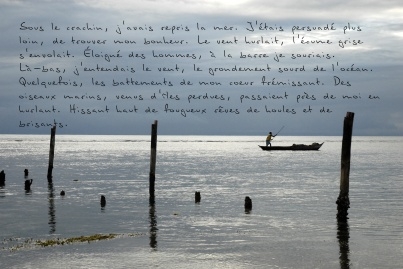 Sous le crachin, j'avais repris la mer. J'étais persuadé plus
loin, de trouver mon bonheur. Le vent hurlait, l'écume grise
s'envolait. Éloigné des hommes, à la barre je souriais.
Là-bas, j'entendais le vent, le grondement sourd de l'océan.
Quelquefois, les battements de mon coeur frémissant. Des
oiseaux marins, venus d'îles perdues, passaient près de moi en
hurlant. Hissant haut de fougueux rêves de houles et de
brisants.